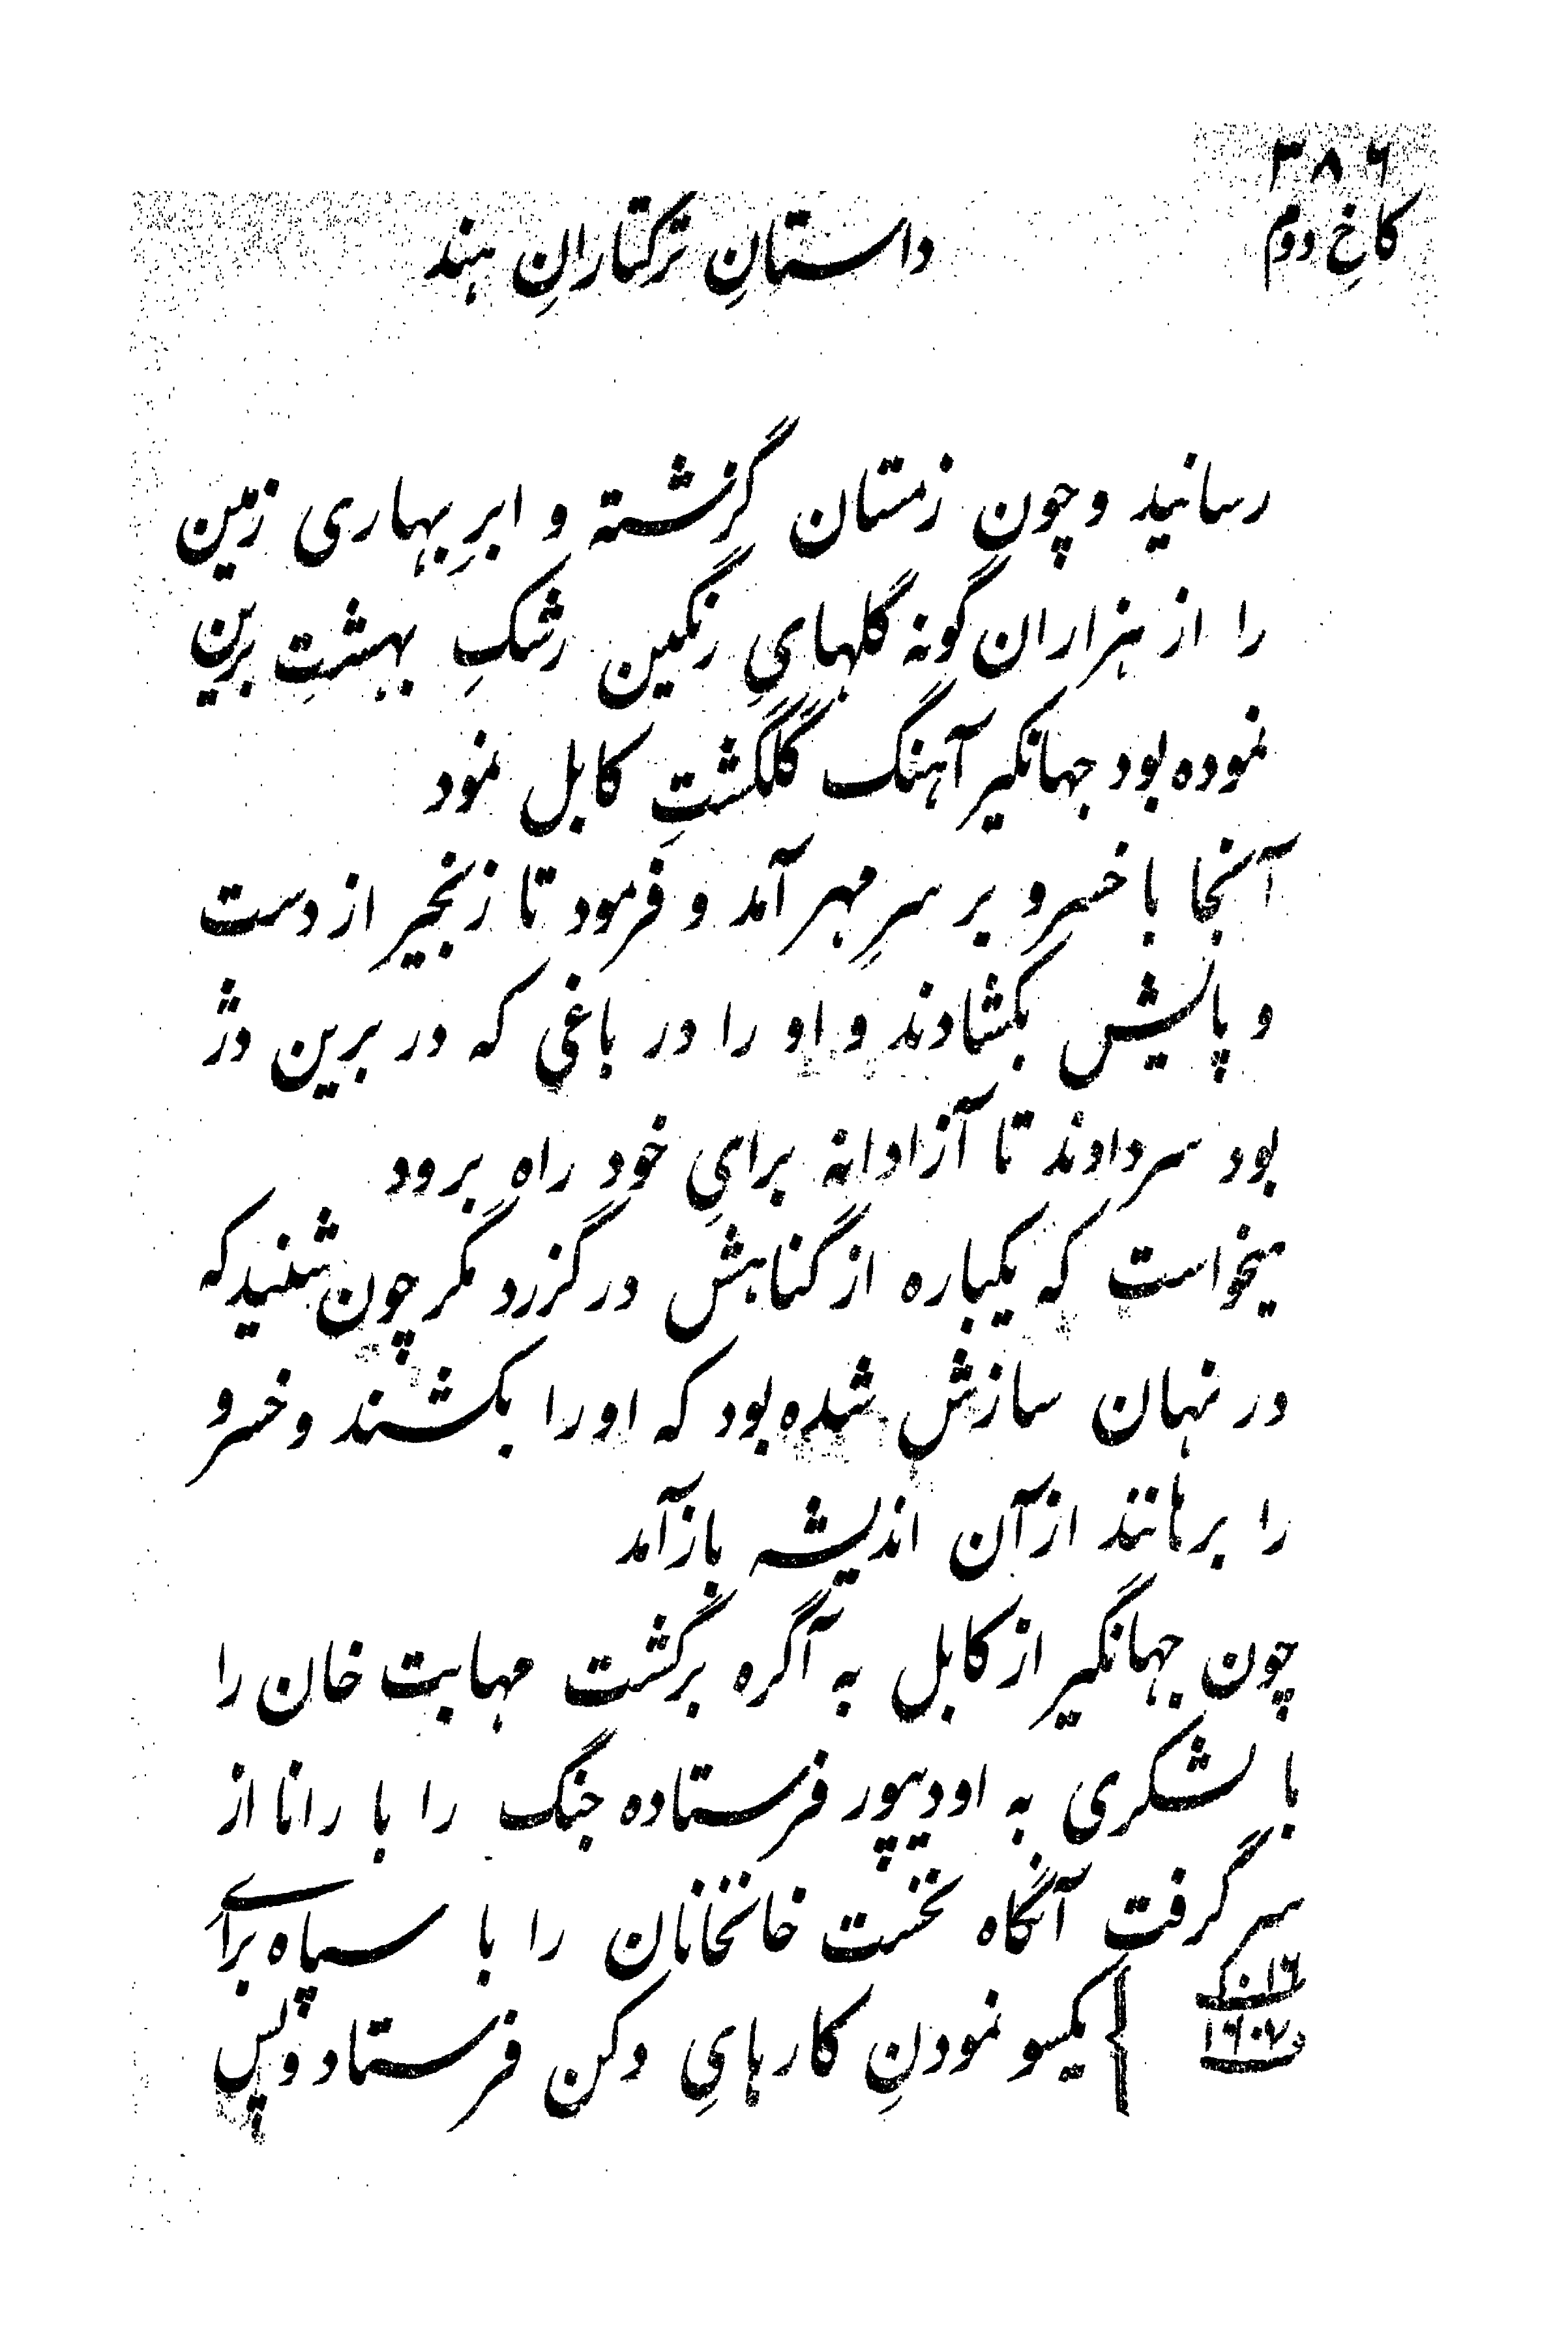 ۳۸۶
کاخِ دوم
داستانِ ترکتازانِ هند
رسانید و چون زمستان گزشته و ابرِ بهاری زمین
را از هزاران گونه گلهایِ رنگین رشکِ بهشتِ برین
نموده بود جهانگیر آهنگ گلگشتِ کابل نمود
آنجا با خسرو بر سرِ مهر آمد و فرمود تا زنجیر از دست
و پایش بکشادند و او را در باغی که در برین دژ
بود سردادند تا آزادانه برایِ خود راه برود
میخواست که یکباره از گناهش درگزرد مگر چون شنید که
در نهان سازش شده بود که اورا بکشند و خسرو
را برهانند از آن اندیشه باز آمد
چون جهانگیر از کابل به آگره برگشت مهابت خان را
با لشکری به اودیپور فرستاده جنگ را با رانا از
سر گرفت آنگاه نخست خانخانان را با سپاه برای
یکسو نمودنِ کارهایِ دکن فرستاد و پس
۱۰۱۶
۱۶۰۷